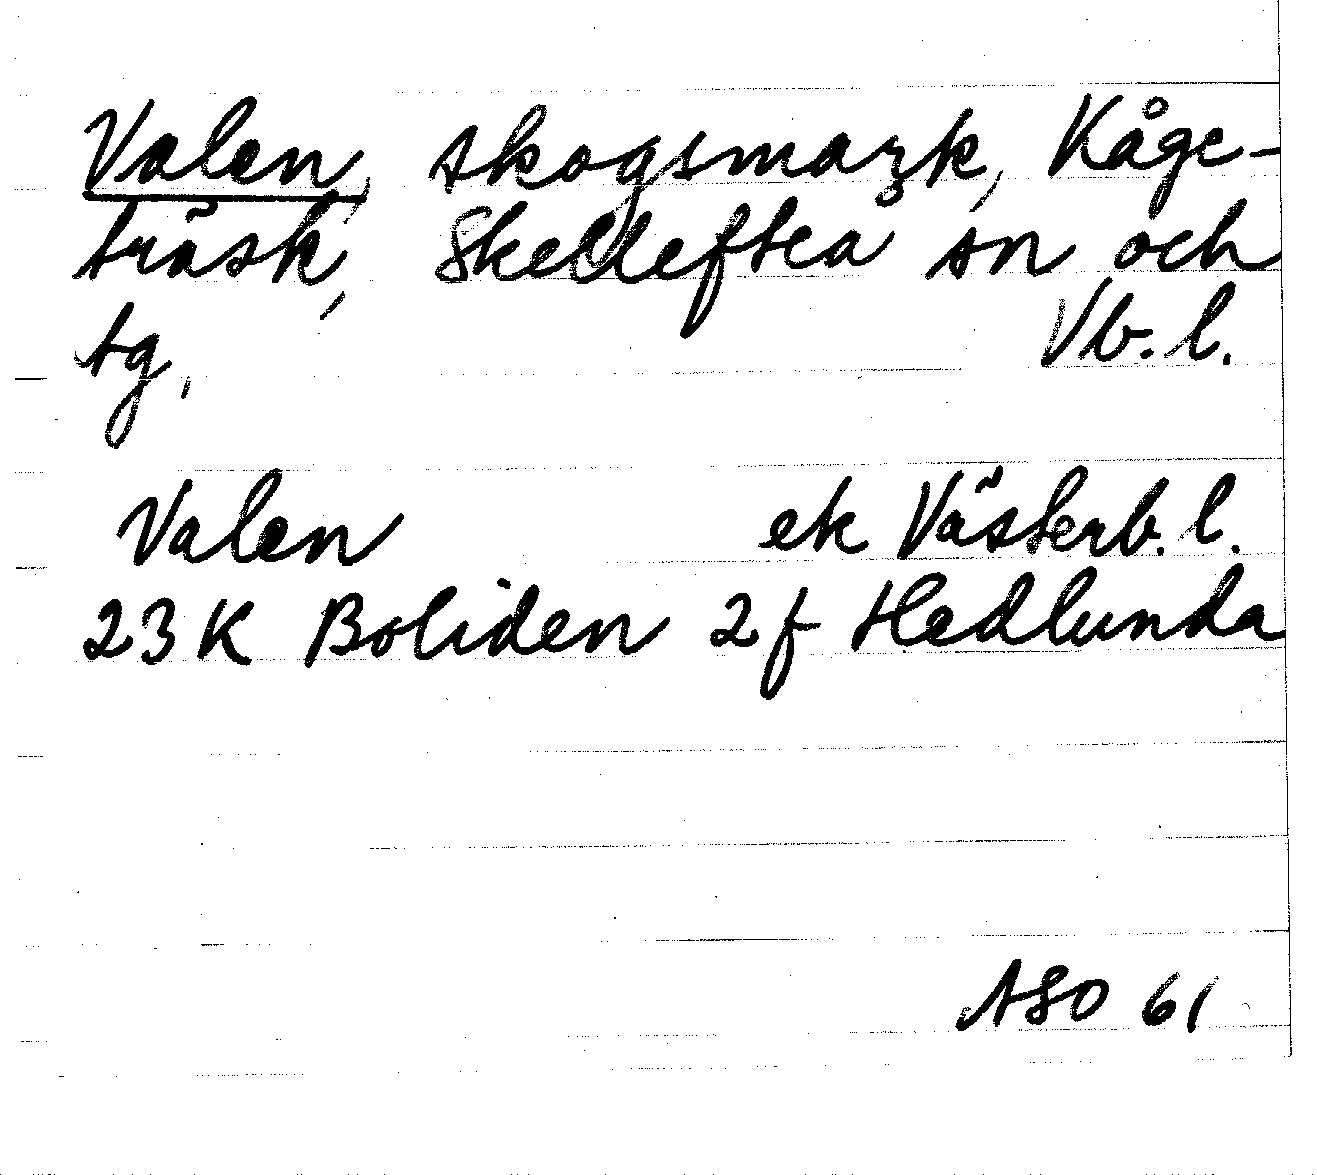 Valen, skogsmark, Kåge-
träsk, Skelleftea sn och
tg, Vb. l.
Valen ek Västerb. l.
23 K Boliden 2f Hedlunda
ASO 61